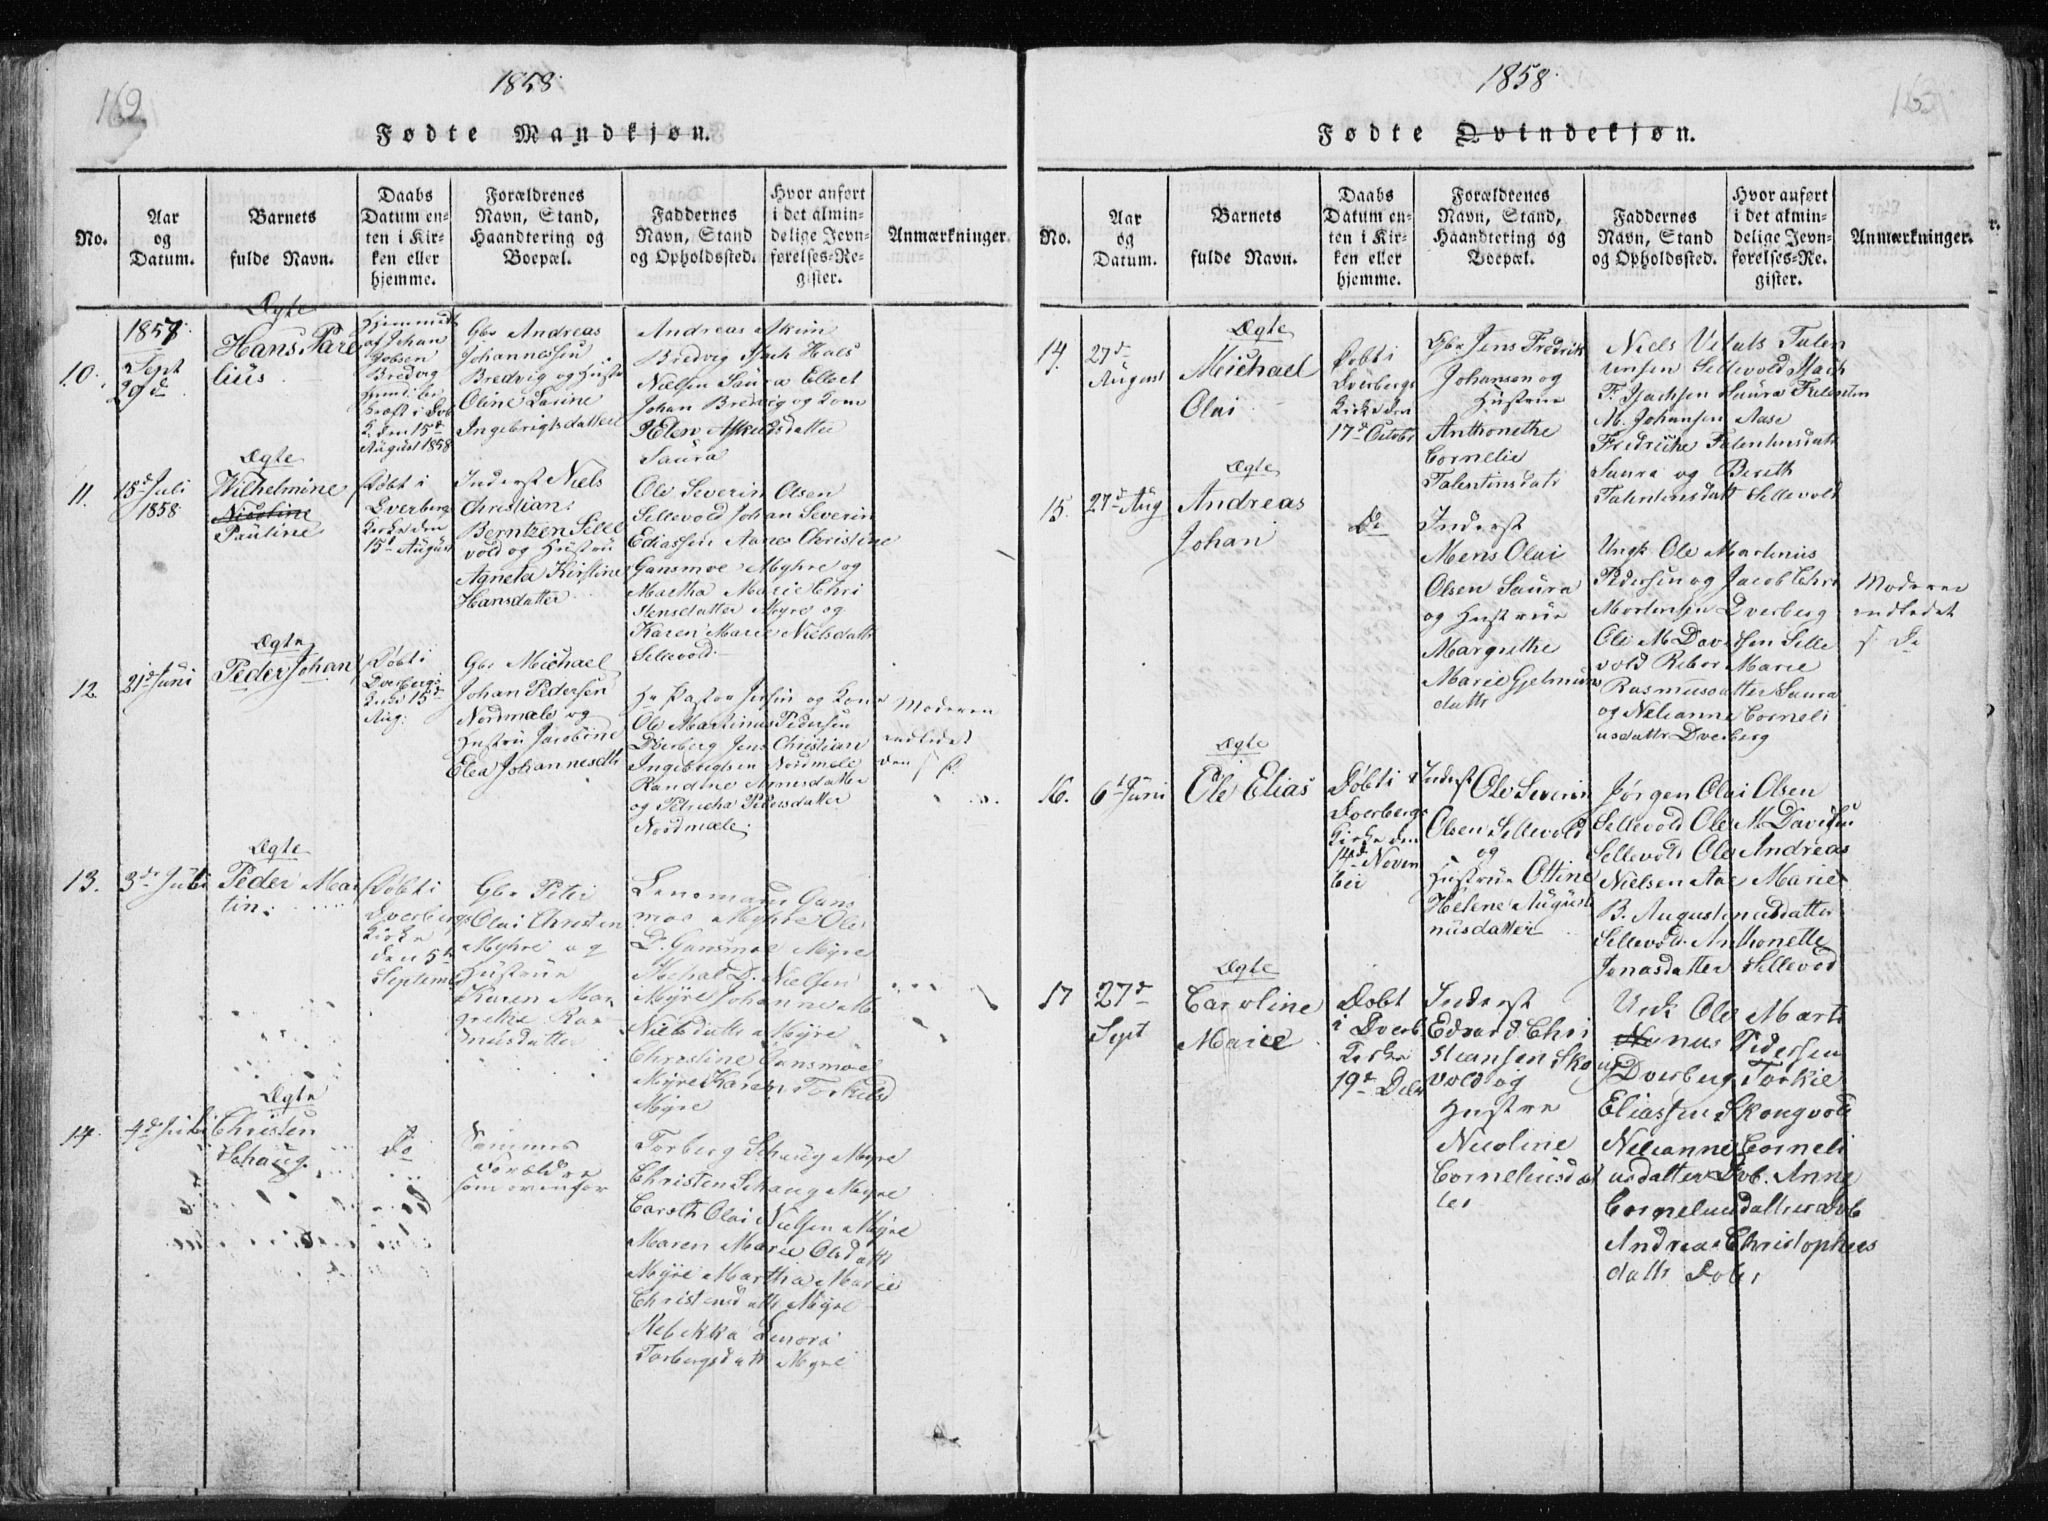 162
1858.
Fødte Mandkjøn.
No.
Aar og Datum.
Barnets fulde Navn.
Daabs Datum enten i Kirken eller hjemme.
Forældrenes Navn, Stand, Haandtering og Boepæl.
Faddernes Navn, Stand og Opholdssted.
Hvor anført i det almindelige Jevnførelses-Register.
Anmærkninger.
10.
1857.
Sept
29d
Ægte
Hans Pare
lius
Hjemmedt
af Johan
Bredvig
K. den 15de
August 1858
Gbr Andreas
Johannessen
Bredvig og Hustr
Oline Larine
Ingebrigtsdatter
Andreas
Bredvig
Nielsen Saura
Johan Bredvig og Kone
Helen
Saura
11.
15d Juli
1858
Ægte
Wilhelmine
Nicoline
Pauline
Døbt i
Dverberg
Kirke den
15d August
Inderst Niels
Christian
Berntzen Selle
vold og Hustru
Agneta Kirstine
Hansdatter
Ole Severin Olsen
Sellevold Johan Severin
Eliassen Aanes Christine
Gansmoe Myhre og
Martha Marie Chri
stensdatter Myre og
Karen Marie Nielsdattr
Sellevold.
12.
21d Juni
Ægte
Peder Johan
Døbt i
Dverbergs
Kirke 15d
Aug:
Gbr Michael
Johan Pedersen
Nordmæle og
Hustru Jacobine
Elea Johannesdtr
Hr Pastor Jersin og Kone
Ole Martinus Pedersen
Dverberg Jens Christian
Ingebrigtsen Nordmæle
Randine Agnesdatter
og Petricka Pedersdatter
Nordmæle.
Moderen
indledet
den
13.
3de Juli
Ægte
Peder Mar
tin.
Døbt i
Dverbergs
Kirke
den 5te
September
Gbr Peter
Olai Christen
Myhre og
Hustrue
Karen Mar
grethe Ras
musdatter
Lensmand Gans
moe Myhre Ole
D. Gansmoe Myre
Michal D. Nielsen
Myre Johanne M
Nielsdattr Myre
Christine Gansmoe
Myre Karen Torkelsd
Myre
14.
4d Juli
Ægte
Christen
Schaug.
Do
Sammes
Forældre
som ovenfor
Torberg Schaug Myre
Christen Schaug Myre
Carsth Olai Nielsen Myre
Maren Marie Olsdattr
Myre Martha Marie
Christensdattr Myre
Rebekka Lenora
Torbergsdattr Myre
1858.
Fødte Qvindekjøn.
No.
Aar og Datum.
Barnets fulde Navn.
Daabs Datum enten i Kirken eller hjemme.
Forældrenes Navn, Stand, Haandtering og Boepæl.
Faddernes Navn, Stand og Opholdssted.
Hvor anført i det almindelige Jevnførelses-Register.
Anmærkninger.
14.
27d
August
Ægte
Michael
Olai
Døbt i
Dverbergs
Kirke den
17d Octobr
Gbr Jens Fredrik
Johansen og
Hustrue
Anthonethe
Cornelie
Talentinsdatr
Niels Vitals Talen
tinsen Sellevold Isach
F. Isachsen Saura Falenten
M. Johansen Aase
Fredricke Falentinsdatr
Saura og Bereth
Talentensdatr Sellevold
15.
27d Aug
Ægte
Andreas
Johan
Do
Inderst
Mens Olai
Olsen Saura
og Hustrue
Margrethe
Marie Gjelmuns
dattr
Ungk Ole Martinus
Pedersen og Jacob Chri
Mortensen Dverberg
Ole M Davidsen Selle
vold Rebor Marie
Rasmusdatter Saura
og Nelianne Corneli
usdattr Dverberg
Moderen
indledet
s. D.
16.
6d Juni
Ægte
Ole Elias
Døbt i
Dverbergs
Kirke den
14d Novem
ber
Inderst Ole Severin
Olsen Sellevold
og
Hustrue Ottine
Helene August
nusdatter
Jørgen Olai Olsen
Sellevold Ole M Davidsen
Sellevold Ole Andreas
Nielsen Aae Marie
B. Augustinusdatter
Sellevold. Anthonette
Jonasdatter Sellevold
17
27d
Sept
Ægte
Caroline
Marie
Døbt
i Dverb
Kirke
19d Decbr
Inderst
Edvard Chri
stiansen Skog
vold og
Hustru
Nicoline
Corneliusdat
ter
Unk. Ole Marti
nus Pedersen
Dverberg Torkie
Eliassen Skongvold
Nelianne Corneli
usdatter Dvb. Anne
Corneliusdatter Dvb
Andrea Christophers
dattr Dvb